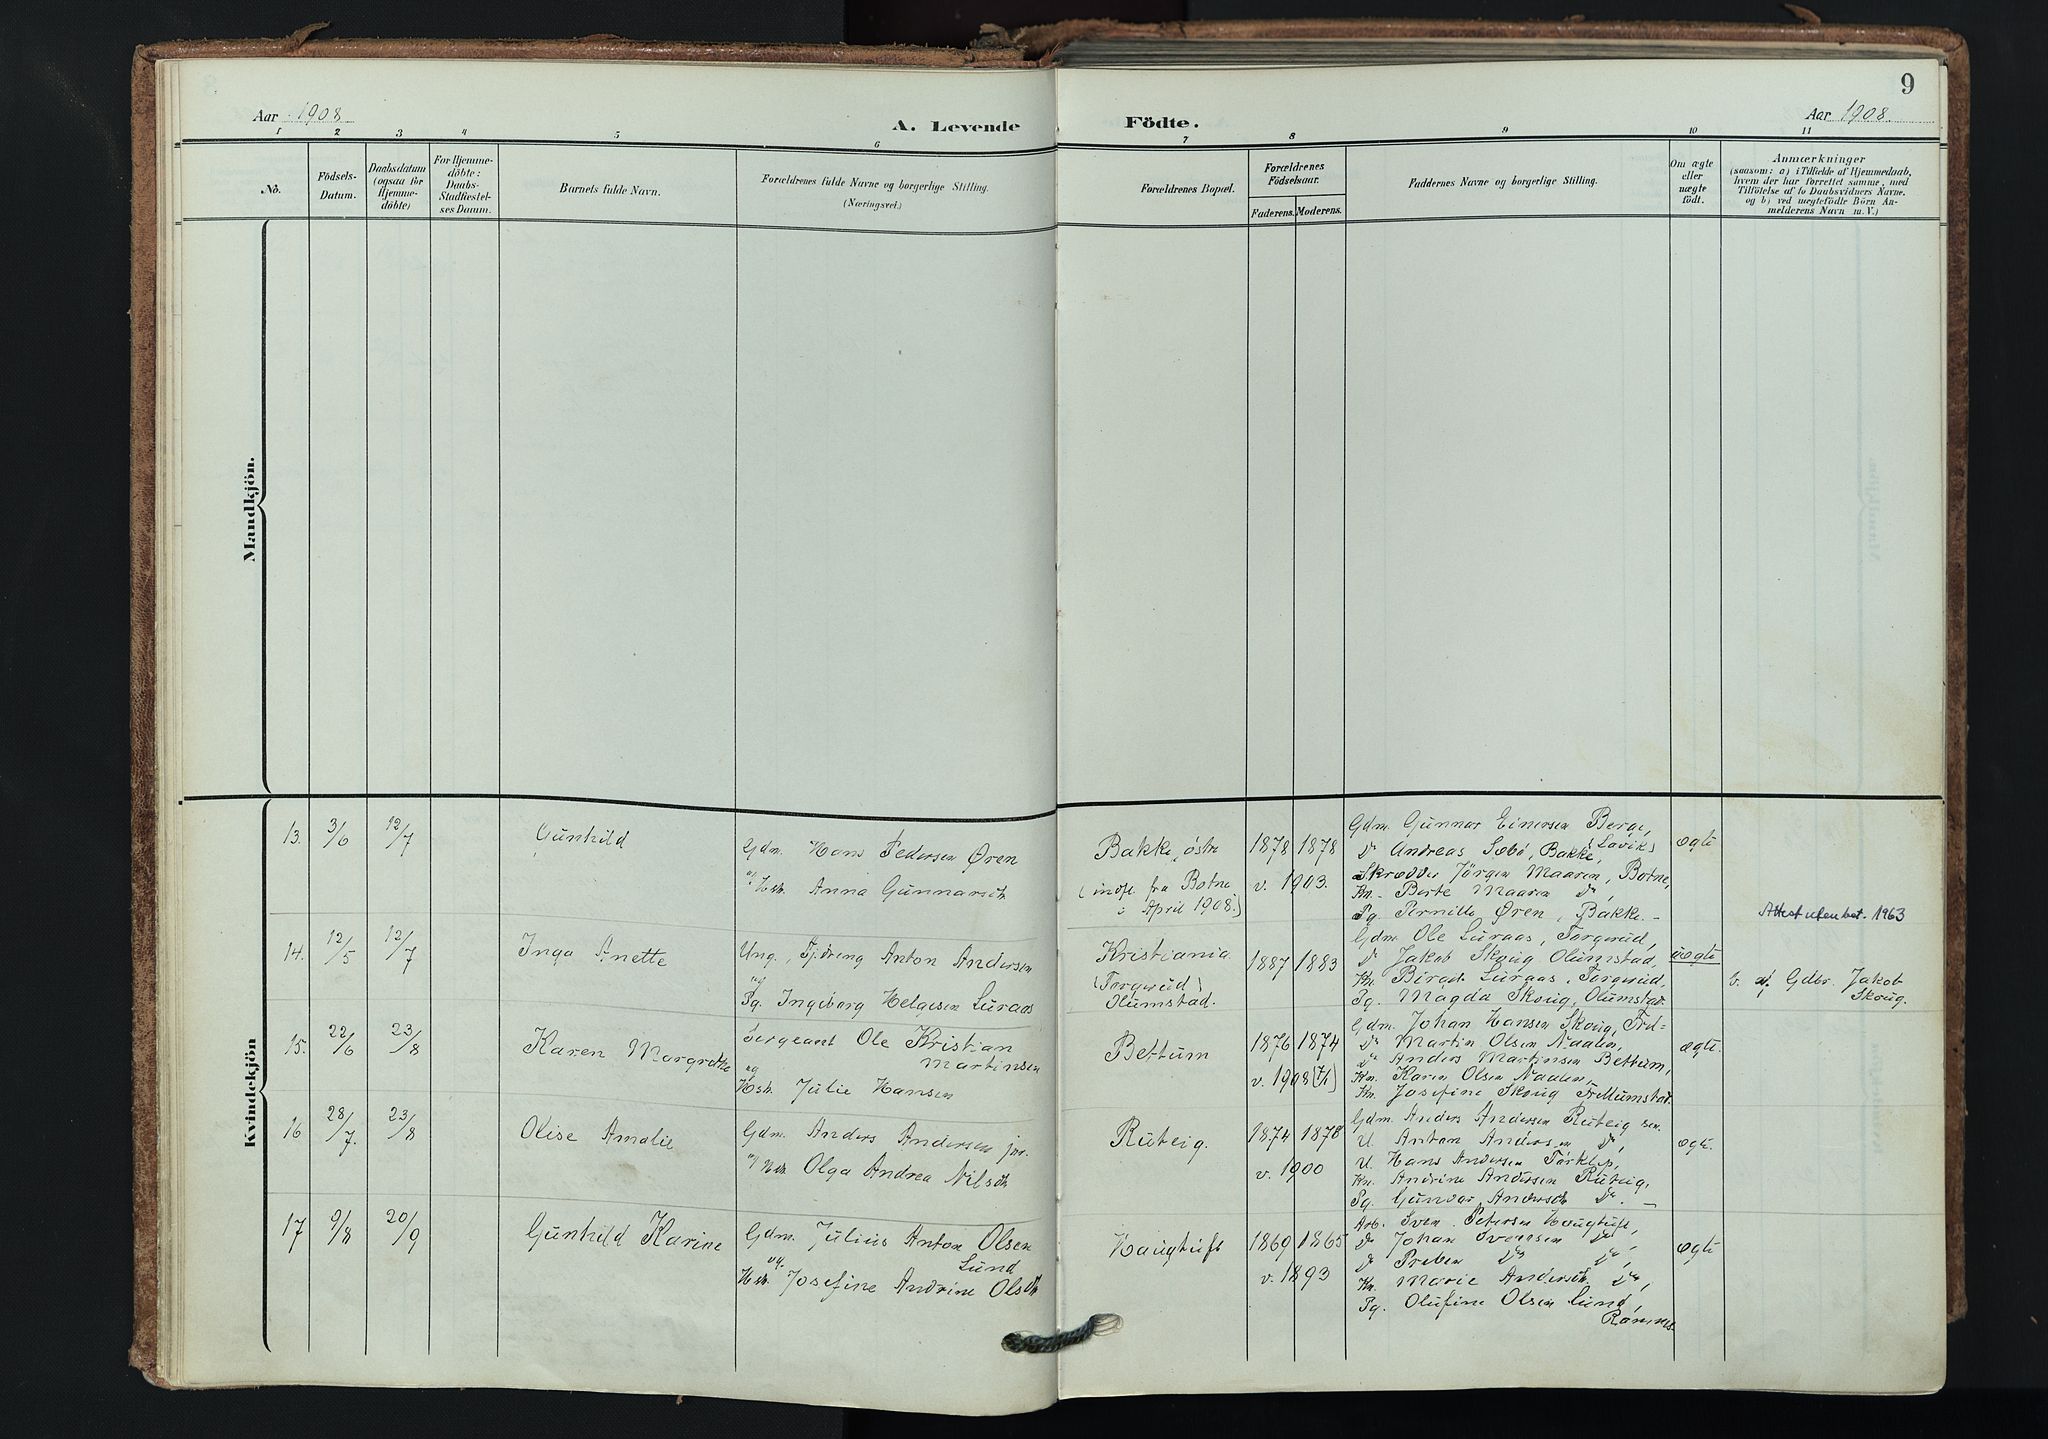 9
Aar 1908
A. Levende Födte.
Aar 1908.
1 2 3 4 5 6 7 8 9 10 11
No.
Födsels-
Datum.
Daabsdatum
(ogsaa for
Hjemme-
döbte)
For Hjemme-
döbte:
Daabs-
Stadfæstel-
ses Datum.
Barnets fulde Navn.
Forældrenes fulde Navne og borgerlige Stilling.
(Næringsvei.)
Forældrenes Bopæl.
Forældrenes
Födselsaar.
Faderens. Moderens.
Faddernes Navne og borgerlige Stilling.
Om ægte
eller
uægte
födt.
Anmærkninger
(saasom: a) i Tilfælde af Hjemmedaab,
hvem der har forrettet samme, med
Tilföielse af to Daabsvidners Navne,
og b) ved uægtefödte Börn An-
melderens Navn m. V.)
Mandkjön.
Kvindekjön
13. 3/6 12/7 Gunhild
Gdm. Hans Pedersen Øren
og Hst. Anna Gunnarsdt
Bakke, østre
(indfl. fra Botne
i April 1908.)
1878 1878
v. 1903.
Gdm. Gunnar Einersen Berge,
Do Andreas Sæbö, Bakke, (Lavik)
Skrædder Jörgen Maaren, Botne,
Kn. Berte Maaren Do,
Pg. Pernille Øren, Bakke.
ægte
Attest uten bet. 1963
14. 12/5 12/7 Inga Anette
Ung., Tjdreng Anton Andersen
og
Pg. Ingeborg Helgesen Luraas
Kristiania
(Torgerud)
Olumstad.
1887 1883
Gdm. Ole Luraas, Torgerud,
Do Jakob Skoug, Olumstad,
Kn. Birgit Luraas, Torgerud,
Pg. Magda Skoug, Olumstad.
uægte
v. af Gdbr. Jakob
Skoug.
15. 22/6 23/8 Karen Margrethe
Sergeant Ole Kristian
Martinsen
og
Hst. Julie Hansen
Bettum
1876 1874
v. 1908 (7/1)
Gdm. Johan Hansen Skoug,
Do Martin Olsen Naalen,
Do Anders Martinsen Bettum,
Kn. Karen Olsen Naalen,
Kn. Josefine Skoug
ægte.
16 28/7. 23/8 Olise Amalie
Gdm. Anders Andersen jnr.
og Hst. Olga Andrea Nilsdt
Ruteig.
1874 1878
v. 1900
Gdm. Anders Andersen Ruteig sen.
U. Anton Andersen Do,
U. Hans Andersen Torklep,
Kn. Andrine Andersen Ruteig,
Pg. Gunvor Andersdt. Do. —
ægte.
17 9/8 20/9 Gunhild Karine
Gdm. Julius Anton Olsen
Lund
og
Hst. Josefine Andrine Olsdt
Haugtuft
1869 1865
v. 1893
Arb. Sven Petersen Haugtuft,
Do Johan Svendsen Do,
Do Preben Do Do,
Kn. Marie Andersdt. Do,
Pg. Olufine Olsen Lund,
Ramnes.
ægte